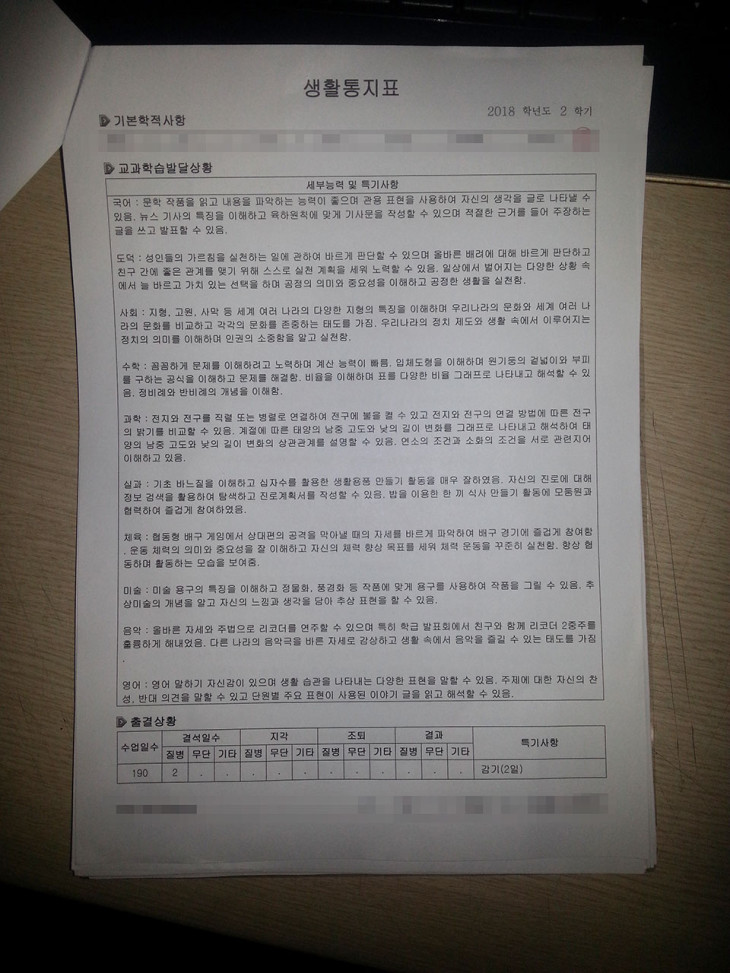 생활통지표
2018 학년도 2 학기
기본학적사항
교과학습발달상황
세부능력 및 특기사항
국어 : 문학 작품을 읽고 내용을 파악하는 능력이 좋으며 관용 표현을 사용하여 자신의 생각을 글로 나타낼 수
있음. 뉴스 기사의 특징을 이해하고 육하원칙에 맞게 기사문을 작성할 수 있으며 적절한 근거를 들어 주장하는
글을 쓰고 발표할 수 있음.
도덕 : 성인들의 가르침을 실천하는 일에 관하여 바르게 판단할 수 있으며 올바른 배려에 대해 바르게 판단하고
친구 간에 좋은 관계를 맺기 위해 스스로 실천 계획을 세워 노력할 수 있음. 일상에서 벌어지는 다양한 상황 속
에서 늘 바르고 가치 있는 선택을 하며 공정의 의미와 중요성을 이해하고 공정한 생활을 실천함.
사회 : 지형, 고원, 사막 등 세계 여러 나라의 다양한 지형의 특징을 이해하며 우리나라의 문화와 세계 여러 나
라의 문화를 비교하고 각각의 문화를 존중하는 태도를 가짐. 우리나라의 정치 제도와 생활 속에서 이루어지는
정치의 의미를 이해하며 인권의 소중함을 알고 실천함.
수학 : 꼼꼼하게 문제를 이해하려고 노력하며 계산 능력이 빠름. 입체도형을 이해하며 원기둥의 겉넓이와 부피
를 구하는 공식을 이해하고 문제를 해결함. 비율을 이해하며 표를 다양한 비율 그래프로 나타내고 해석할 수 있
음. 정비례와 반비례의 개념을 이해함.
과학 : 전지와 전구를 직렬 또는 병렬로 연결하여 전구에 불을 켤 수 있고 전지와 전구의 연결 방법에 따른 전구
의 밝기를 비교할 수 있음. 계절에 따른 태양의 남중 고도와 낮의 길이 변화를 그래프로 나타내고 해석하여 태
양의 남중 고도와 낮의 길이 변화의 상관관계를 설명할 수 있음. 연소의 조건과 소화의 조건을 서로 관련지어
이해하고 있음.
실과 : 기초 바느질을 이해하고 십자수를 활용한 생활용품 만들기 활동을 매우 잘하였음. 자신의 진로에 대해
정보 검색을 활용하여 탐색하고 진로계획서를 작성할 수 있음. 밥을 이용한 한 끼 식사 만들기 활동에 모둠원과
협력하여 즐겁게 참여하였음.
체육 : 협동형 배구 게임에서 상대편의 공격을 막아낼 때의 자세를 바르게 파악하여 배구 경기에 즐겁게 참여함
. 운동 체력의 의미와 중요성을 잘 이해하고 자신의 체력 향상 목표를 세워 체력 운동을 꾸준히 실천함. 항상 협
동하며 활동하는 모습을 보여줌.
미술 : 미술 용구의 특징을 이해하고 정물화, 풍경화 등 작품에 맞게 용구를 사용하여 작품을 그릴 수 있음. 추
상미술의 개념을 알고 자신의 느낌과 생각을 담아 추상 표현을 할 수 있음.
음악 : 올바른 자세와 주법으로 리코더를 연주할 수 있으며 특히 학급 발표회에서 친구와 함께 리코더 2중주를
훌륭하게 해내었음. 다른 나라의 음악극을 바른 자세로 감상하고 생활 속에서 음악을 즐길 수 있는 태도를 가짐
.
영어 : 영어 말하기 자신감이 있으며 생활 습관을 나타내는 다양한 표현을 말할 수 있음. 주제에 대한 자신의 찬
성, 반대 의견을 말할 수 있고 단원별 주요 표현이 사용된 이야기 글을 읽고 해석할 수 있음.
출결상황
수업일수 결석일수 지각 조퇴 결과 특기사항
질병 무단 기타 질병 무단 기타 질병 무단 기타 질병 무단 기타
190 2 . . . . . . . . . . . 감기(2일)